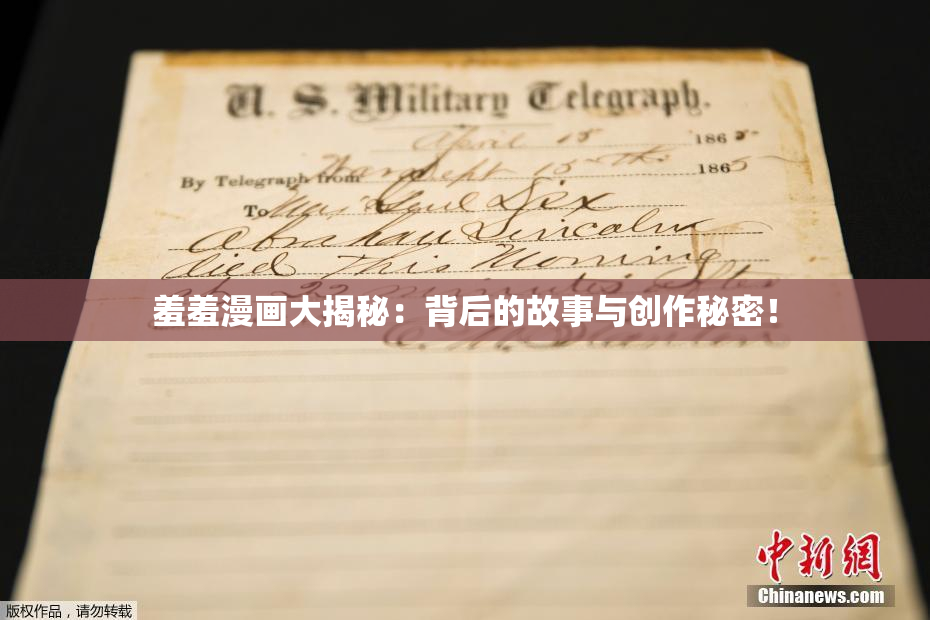 U. S. Military Telegraph.
April 15 1865
By Telegraph from 1865
To Dix
Abraham Lincoln
died This Morning
at 22 minutes after
羞羞漫画大揭秘：背后的故事与创作秘密！
中新网
Chinanews.com
版权作品，请勿转载